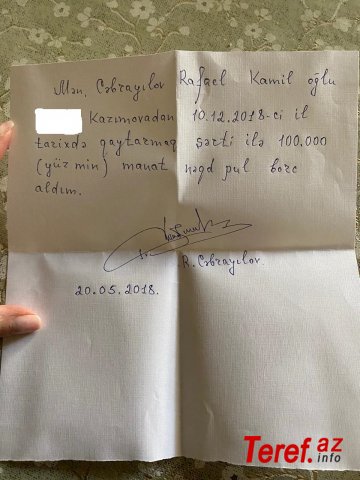 Mən, Cəbrayılov Rafael Kamil oğlu
Kazımovadan 10.12.2018-ci il
tarixdə qaytarmaq şərti ilə 100.000
(yüz min) manat nəğd pul borc
aldım.
R. Cəbrayılov.
20.05.2018.
Teref.az
info